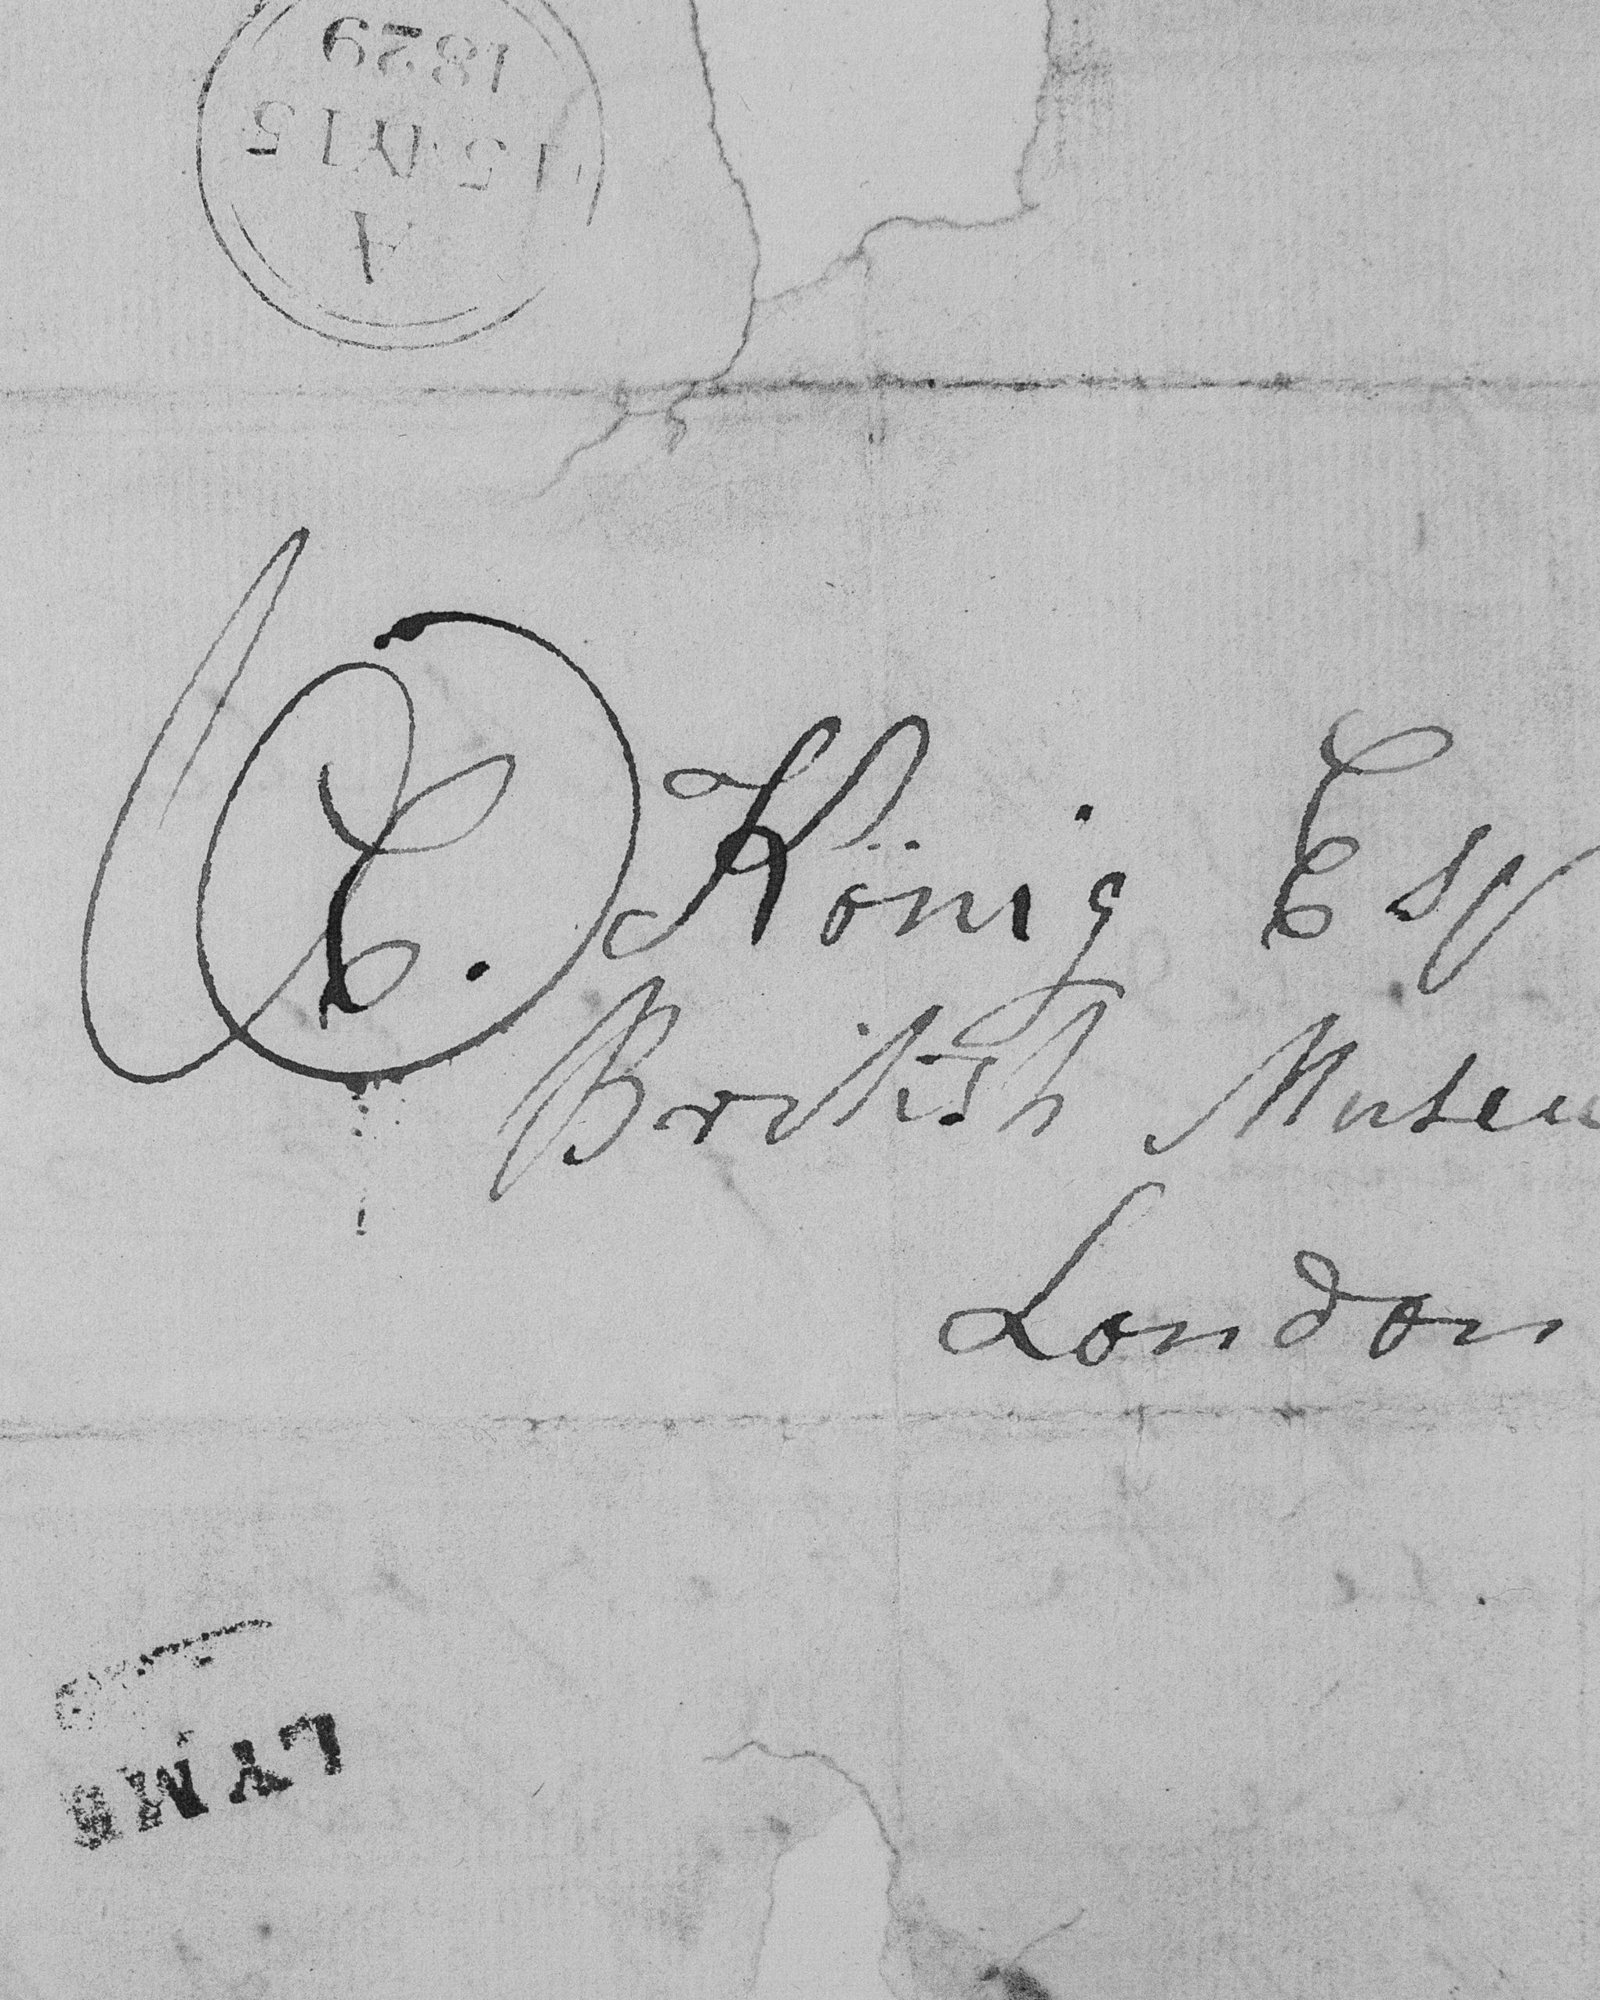 A
15 MY 15
1829
C. König Esq
British Museu
London
LYME